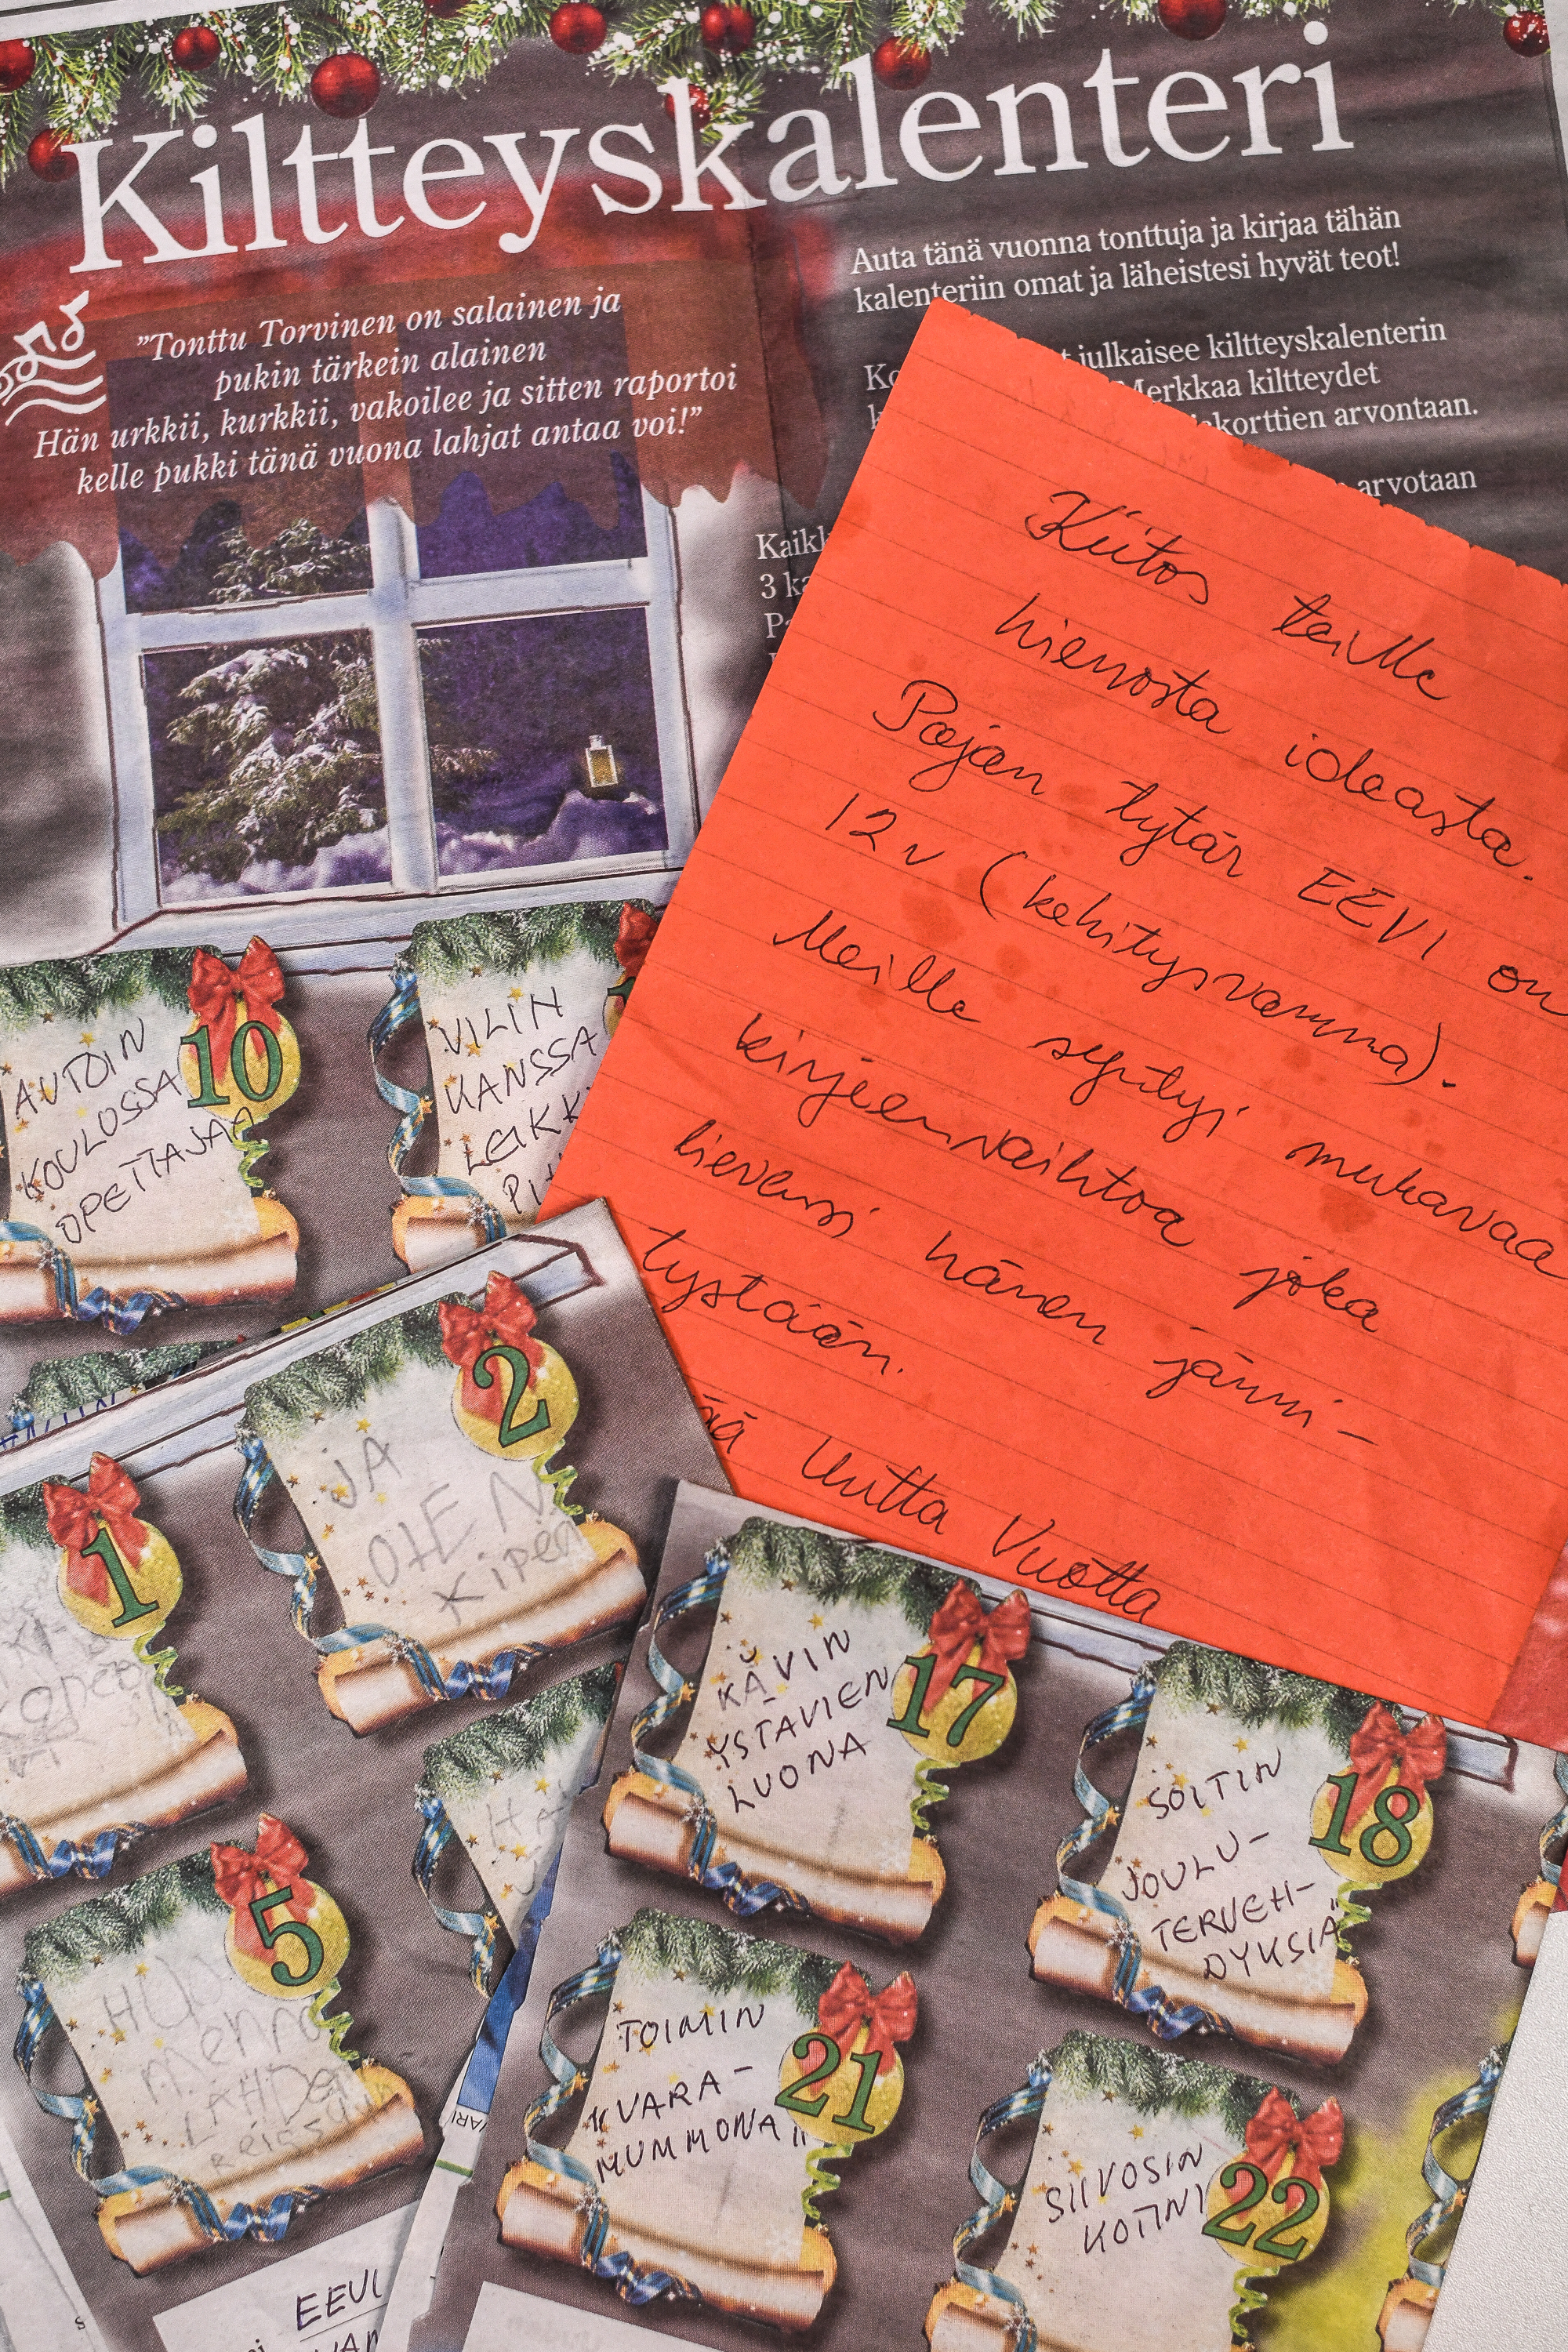 Kiltteyskalenteri
"Tonttu Torvinen on salainen ja
pukin tärkein alainen
Hän urkkii, kurkkii, vakoilee ja sitten raportoi
kelle pukki tänä vuona lahjat antaa voi!"
Auta tänä vuonna tonttuja ja kirjaa tähän
kalenteriin omat ja läheistesi hyvät teot!
julkaisee kiltteyskalenterin
Merkkaa kiltteydet
arvontaan.
arvotaan
3
Kiitos teille
hienosta ideasta.
Pojan tytär EEVI on
12 v (kehitysvamma).
Meille syntyi mukavaa
kirjeenvaihtoa joka
lievensi hänen jänni-
tystään.
Uutta Vuotta
10
AUTOIN
KOULUSSA
OPETTAJAA
VILIN
KANSSA
1
2
JA
OLEN
Kipeä
5
mennä
LÄHDen
reissuun
17
KÄVIN
YSTÄVIEN
LUONA
18
SOITIN
JOULU-
TERVEH-
DYKSIÄ
21
TOIMIN
"VARA-
MUMMONA"
22
SIIVOSIN
KOTINI
EEVI